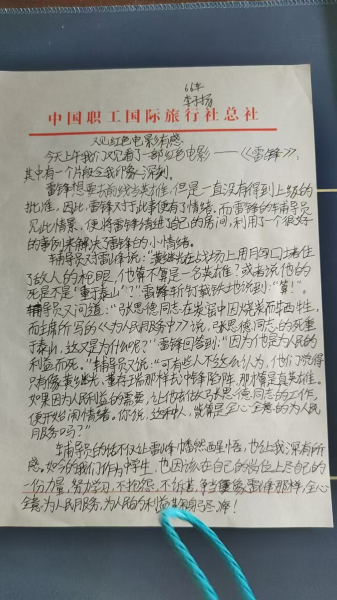 66年
李扬
中国职工国际旅行社总社
观红色电影有感
今天上午我们观看了一部红色电影——《雷锋》,
其中有一个片段令我印象深刻。
雷锋想要去前线当英雄,但是一直没有得到上级的
批准,因此,雷锋对于此事便有了情绪。而雷锋的辅导员
见此情景,便将雷锋请进了自己的房间,利用了一个很好
的事例来解决了雷锋的小情绪。
辅导员对雷锋说:"黄继光在战场上用胸口堵住
了敌人的机眼,他算不算是一名英雄?或者说他的
死是不是"重于泰山"?"雷锋斩钉截铁地说到:"算!"。
辅导员又问道:"张思德同志在炭窑中因烧炭而牺牲,
而主席所写的《为人民服务》中说,张思德同志的死重
于泰山,这又是为什么呢?"雷锋回答到:"因为他是为人民的
利益而死。"辅导员又说:"可有些人不这么认为,他们觉得
只有像黄继光、董存瑞那样去冲锋陷阵,那才算是真英雄。
如果因为人民利益的需要,让他去做张思德同志的工作,
便开始闹情绪。你说,这种人,能算是全心全意的为人民
服务吗?"
辅导员的话不仅让雷锋幡然醒悟,也让我深有所
感。如今的我们作为中学生,也因该在自己的岗位上尽自己的
一份力量,努力学习,不抱怨,不诉苦,争当像雷锋那样,全心
全意为人民服务,为人民的利益